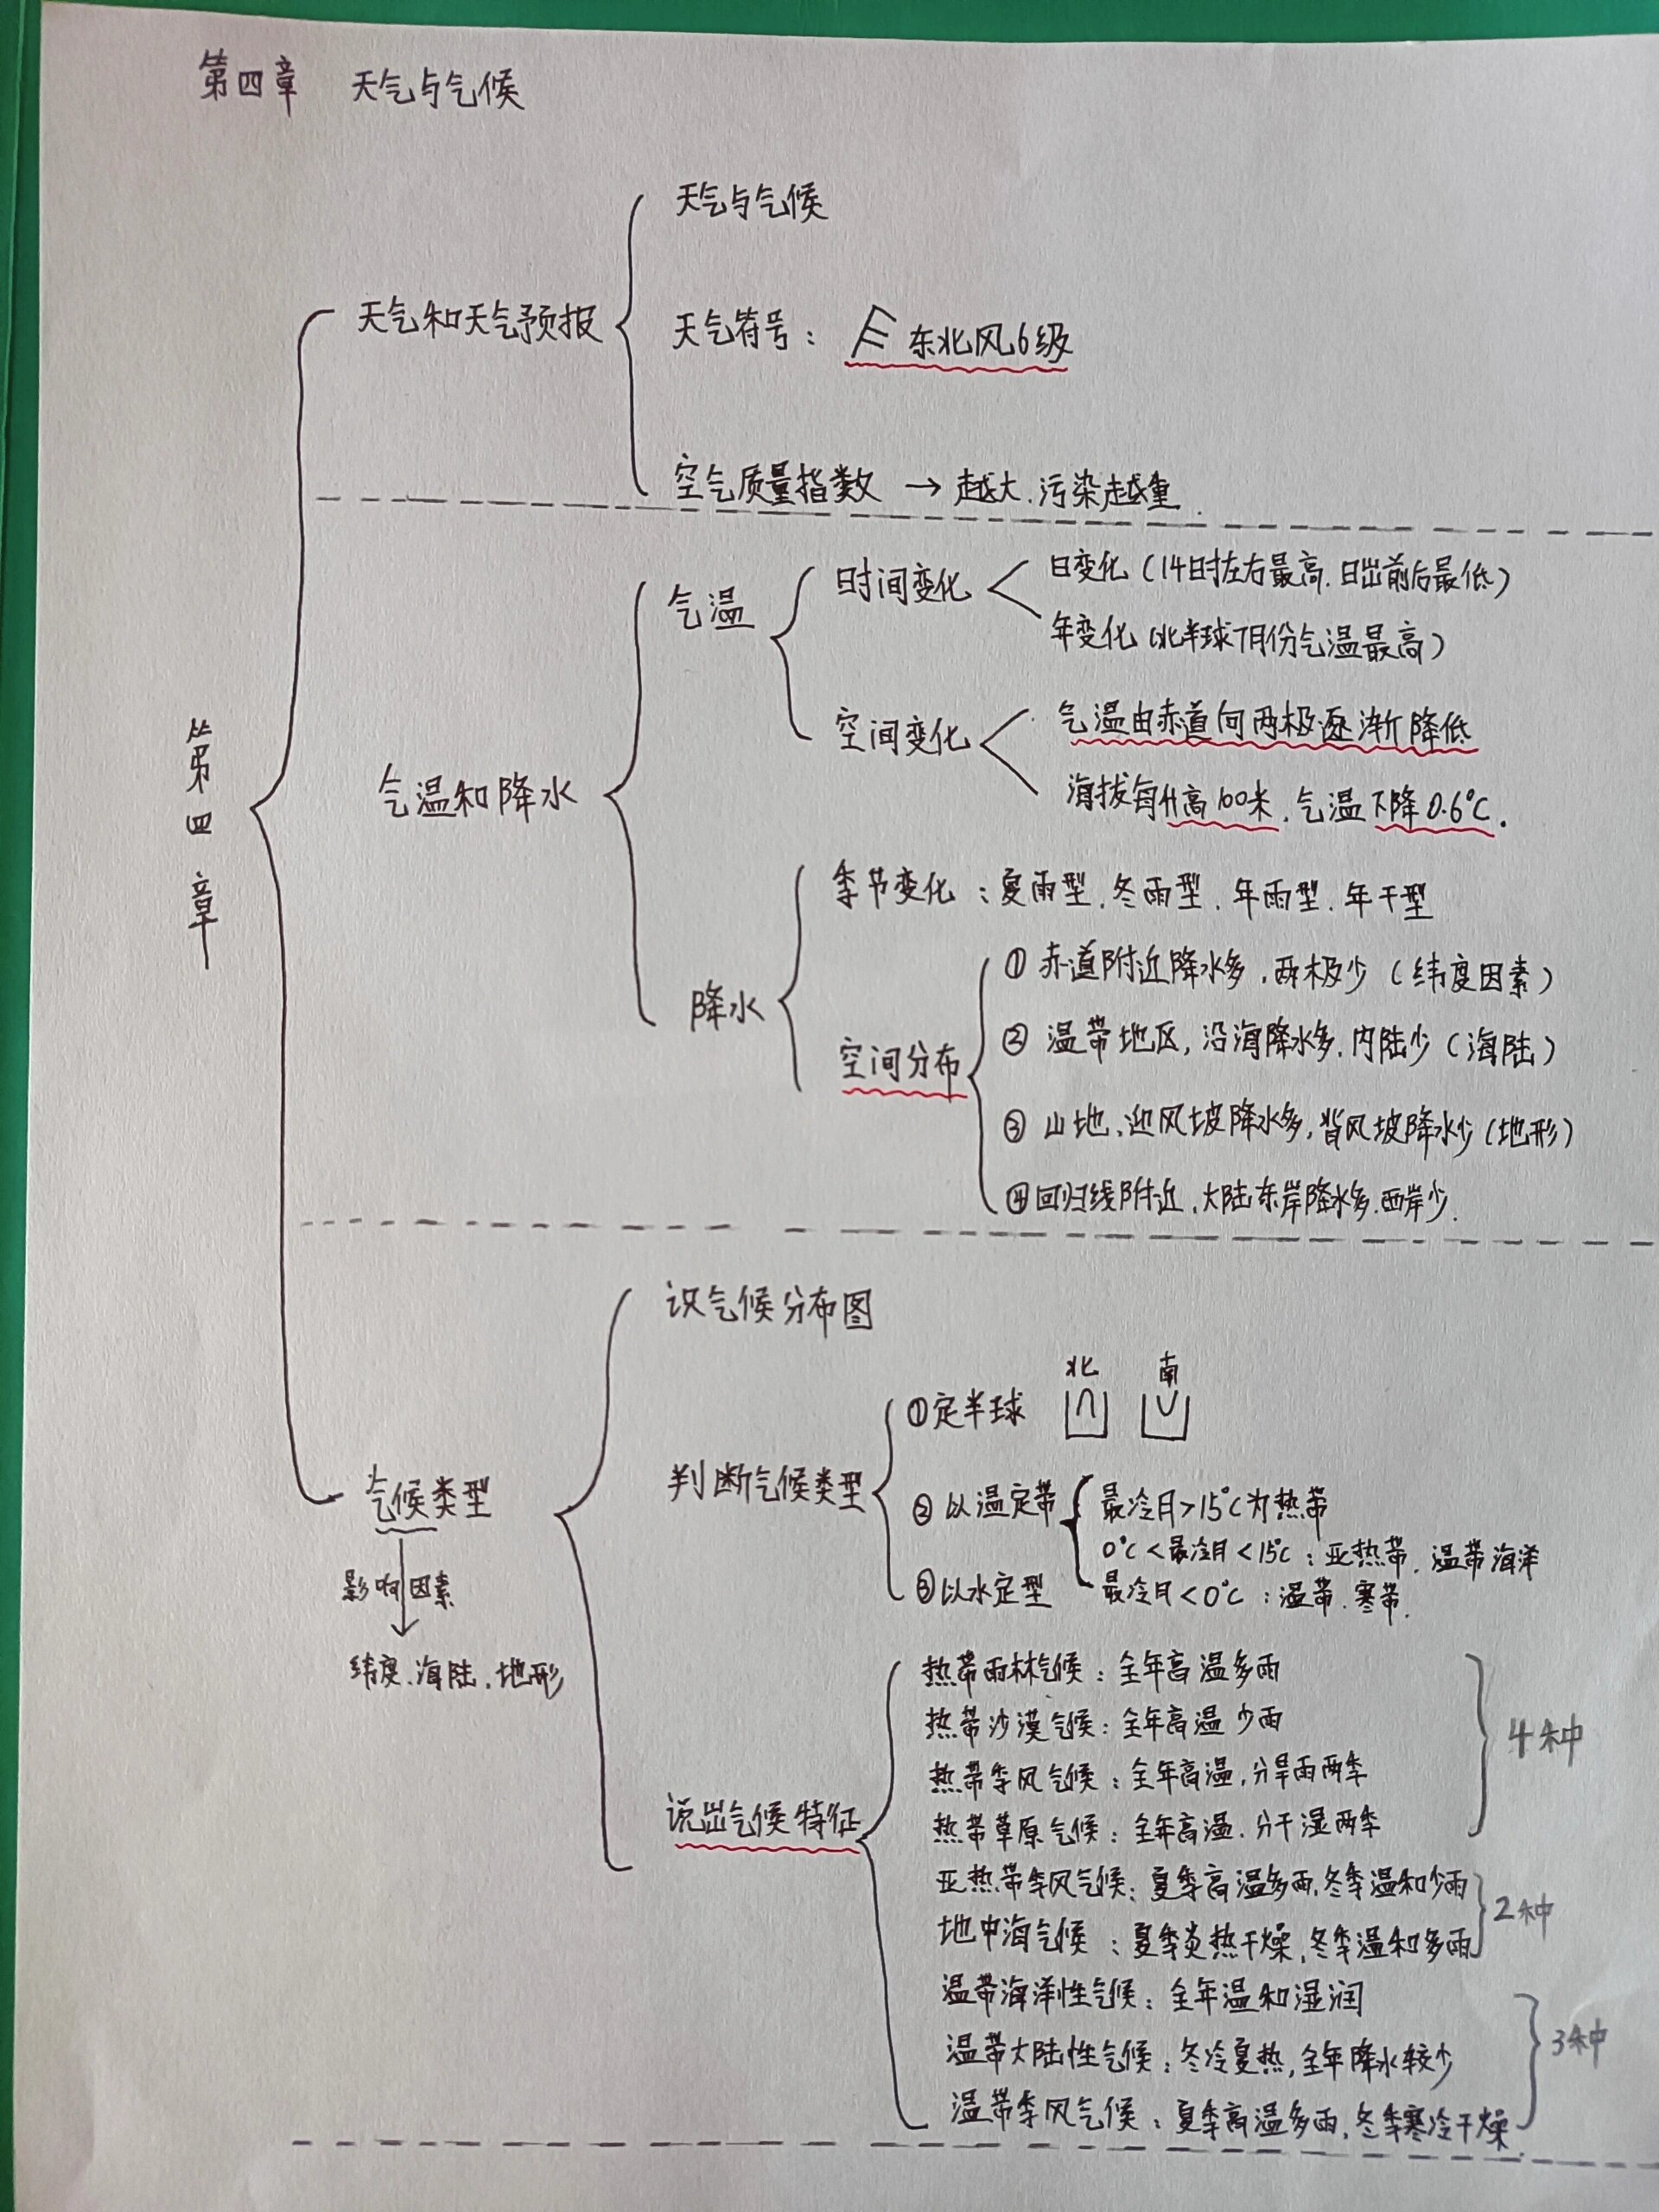 第四章 天气与气候
天气与气候
天气和天气预报
天气符号： 东北风6级
空气质量指数 → 越大.污染越重.
第四章
气温和降水
气温
时间变化
日变化（14时左右最高.日出前后最低）
年变化（北半球7月份气温最高）
空间变化
气温由赤道向两极逐渐降低
海拔每升高100米.气温下降0.6°C.
降水
季节变化：夏雨型.冬雨型.年雨型.年干型
空间分布
① 赤道附近降水多.两极少（纬度因素）
② 温带地区,沿海降水多.内陆少（海陆）
③ 山地.迎风坡降水多,背风坡降水少（地形）
④回归线附近.大陆东岸降水多.西岸少.
气候类型
影响因素
纬度.海陆.地形
识气候分布图
判断气候类型
①定半球 北 南
②以温定带
最冷月>15°C为热带
0°C<最冷月<15°C：亚热带.温带海洋
最冷月<0°C：温带.寒带.
③以水定型
说出气候特征
热带雨林气候：全年高温多雨
热带沙漠气候：全年高温少雨
热带季风气候：全年高温,分旱雨两季
热带草原气候：全年高温.分干湿两季
4种
亚热带季风气候：夏季高温多雨.冬季温和少雨
地中海气候：夏季炎热干燥,冬季温和多雨
2种
温带海洋性气候：全年温和湿润
温带大陆性气候：冬冷夏热,全年降水较少
温带季风气候：夏季高温多雨,冬季寒冷干燥.
3种